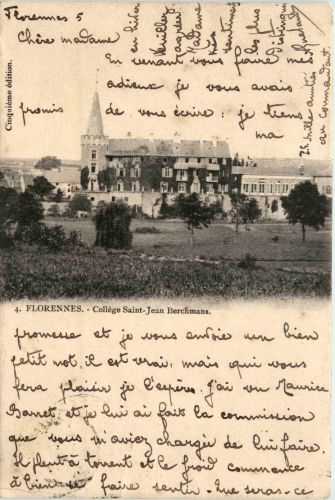 Florennes 5
Chère madame
En venant vous faire mes
adieux je vous avais
promis de vous écrire : je tiens
ma
Cinquième édition.
4. FLORENNES. - Collège Saint-Jean Berchmans.
promesse et je vous envoie un bien
petit mot, il est vrai, mais qui vous
fera plaisir je l'espère. J'ai vu Maurice
Barret et je lui ai fait la commission
que vous m'aviez chargée de lui faire.
Il pleut à torrent et le froid commence
à bien se faire sentir. Que sera-ce
en hiver
Veuillez
agréer
Madame
mes
sentiments
les plus
distingués
mille amitiés
au commandant